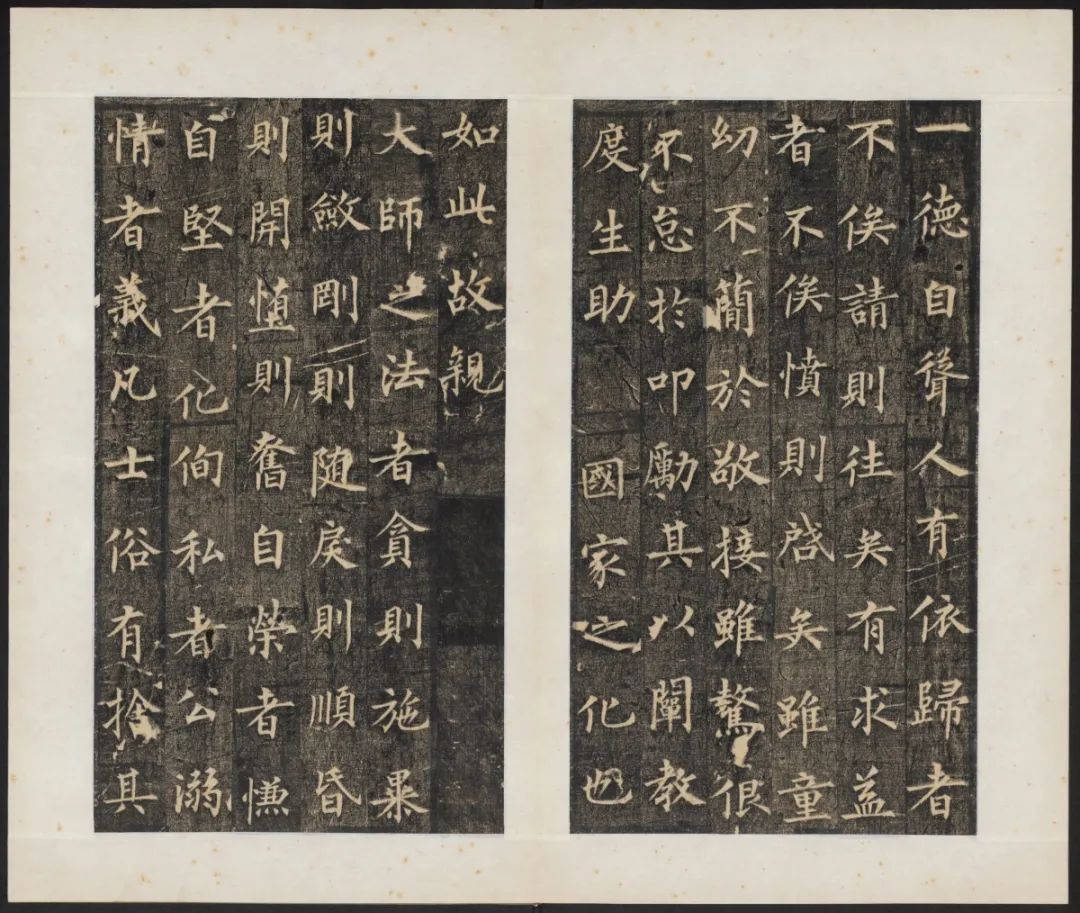 一德自聳人有依歸者
不俟請則往矣有求益
者不俟憤則啓矣雖童
幼不簡於敬接雖驁佷
不怠於叩勵其以闡教
度生助國家之化也
如此故親
大師之法者貪則施暴
則斂剛則随戾則順昏
則開憻則奮自榮者慊
自堅者化侚私者公溺
情者義凡士俗有捨其